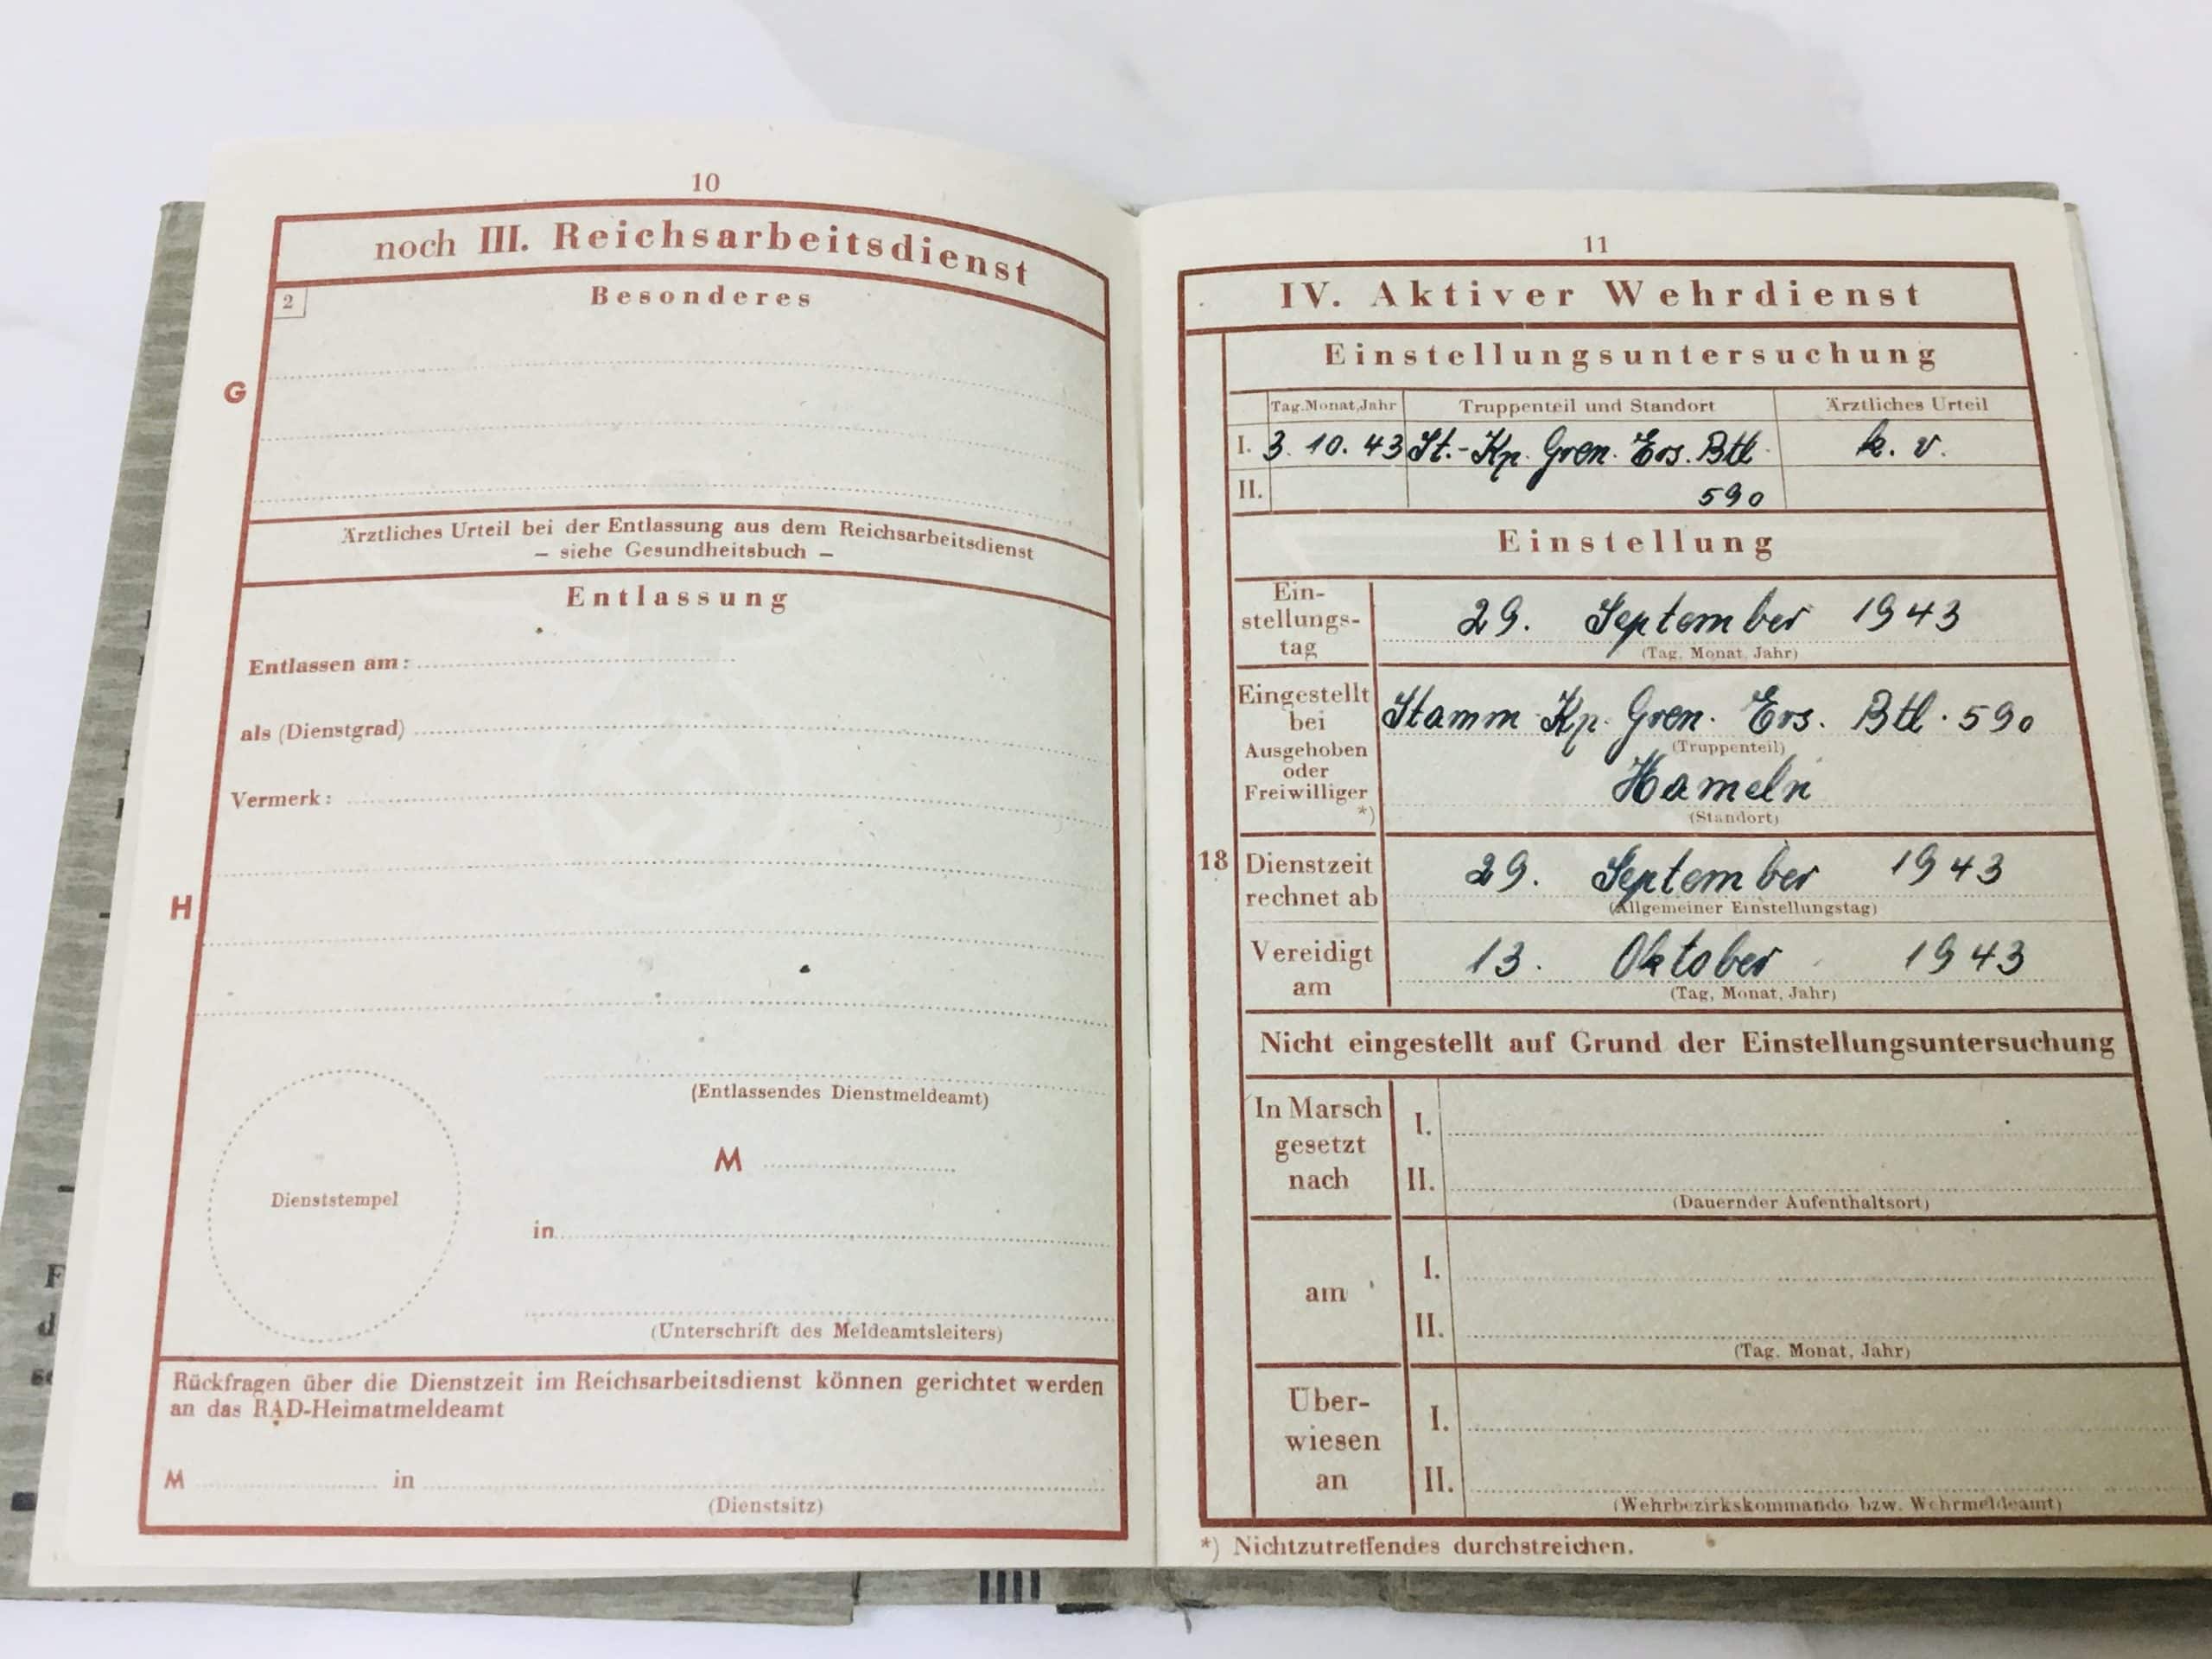 10
noch III. Reichsarbeitsdienst
2
Besonderes
G
Ärztliches Urteil bei der Entlassung aus dem Reichsarbeitsdienst
– siehe Gesundheitsbuch –
Entlassung
Entlassen am:
als (Dienstgrad)
Vermerk:
H
(Entlassendes Dienstmeldeamt)
M
Dienststempel
in
(Unterschrift des Meldeamtsleiters)
Rückfragen über die Dienstzeit im Reichsarbeitsdienst können gerichtet werden
an das RAD-Heimatmeldeamt
M in
(Dienstsitz)
11
IV. Aktiver Wehrdienst
Einstellungsuntersuchung
Tag, Monat, Jahr Truppenteil und Standort Ärztliches Urteil
I. 3. 10. 43 St.-Kp. Gren. Ers. Btl. k. v.
II. 590
Einstellung
Ein-
stellungs-
tag
29. September 1943
(Tag, Monat, Jahr)
Eingestellt
bei
Ausgehoben
oder
Freiwilliger
*)
Stamm Kp. Gren. Ers. Btl. 590
(Truppenteil)
Hameln
(Standort)
18
Dienstzeit
rechnet ab
29. September 1943
(Allgemeiner Einstellungstag)
Vereidigt
am
13. Oktober 1943
(Tag, Monat, Jahr)
Nicht eingestellt auf Grund der Einstellungsuntersuchung
In Marsch
gesetzt
nach
I.
II.
(Dauernder Aufenthaltsort)
am
I.
II.
(Tag, Monat, Jahr)
Über-
wiesen
an
I.
II.
(Wehrbezirkskommando bzw. Wehrmeldeamt)
*) Nichtzutreffendes durchstreichen.